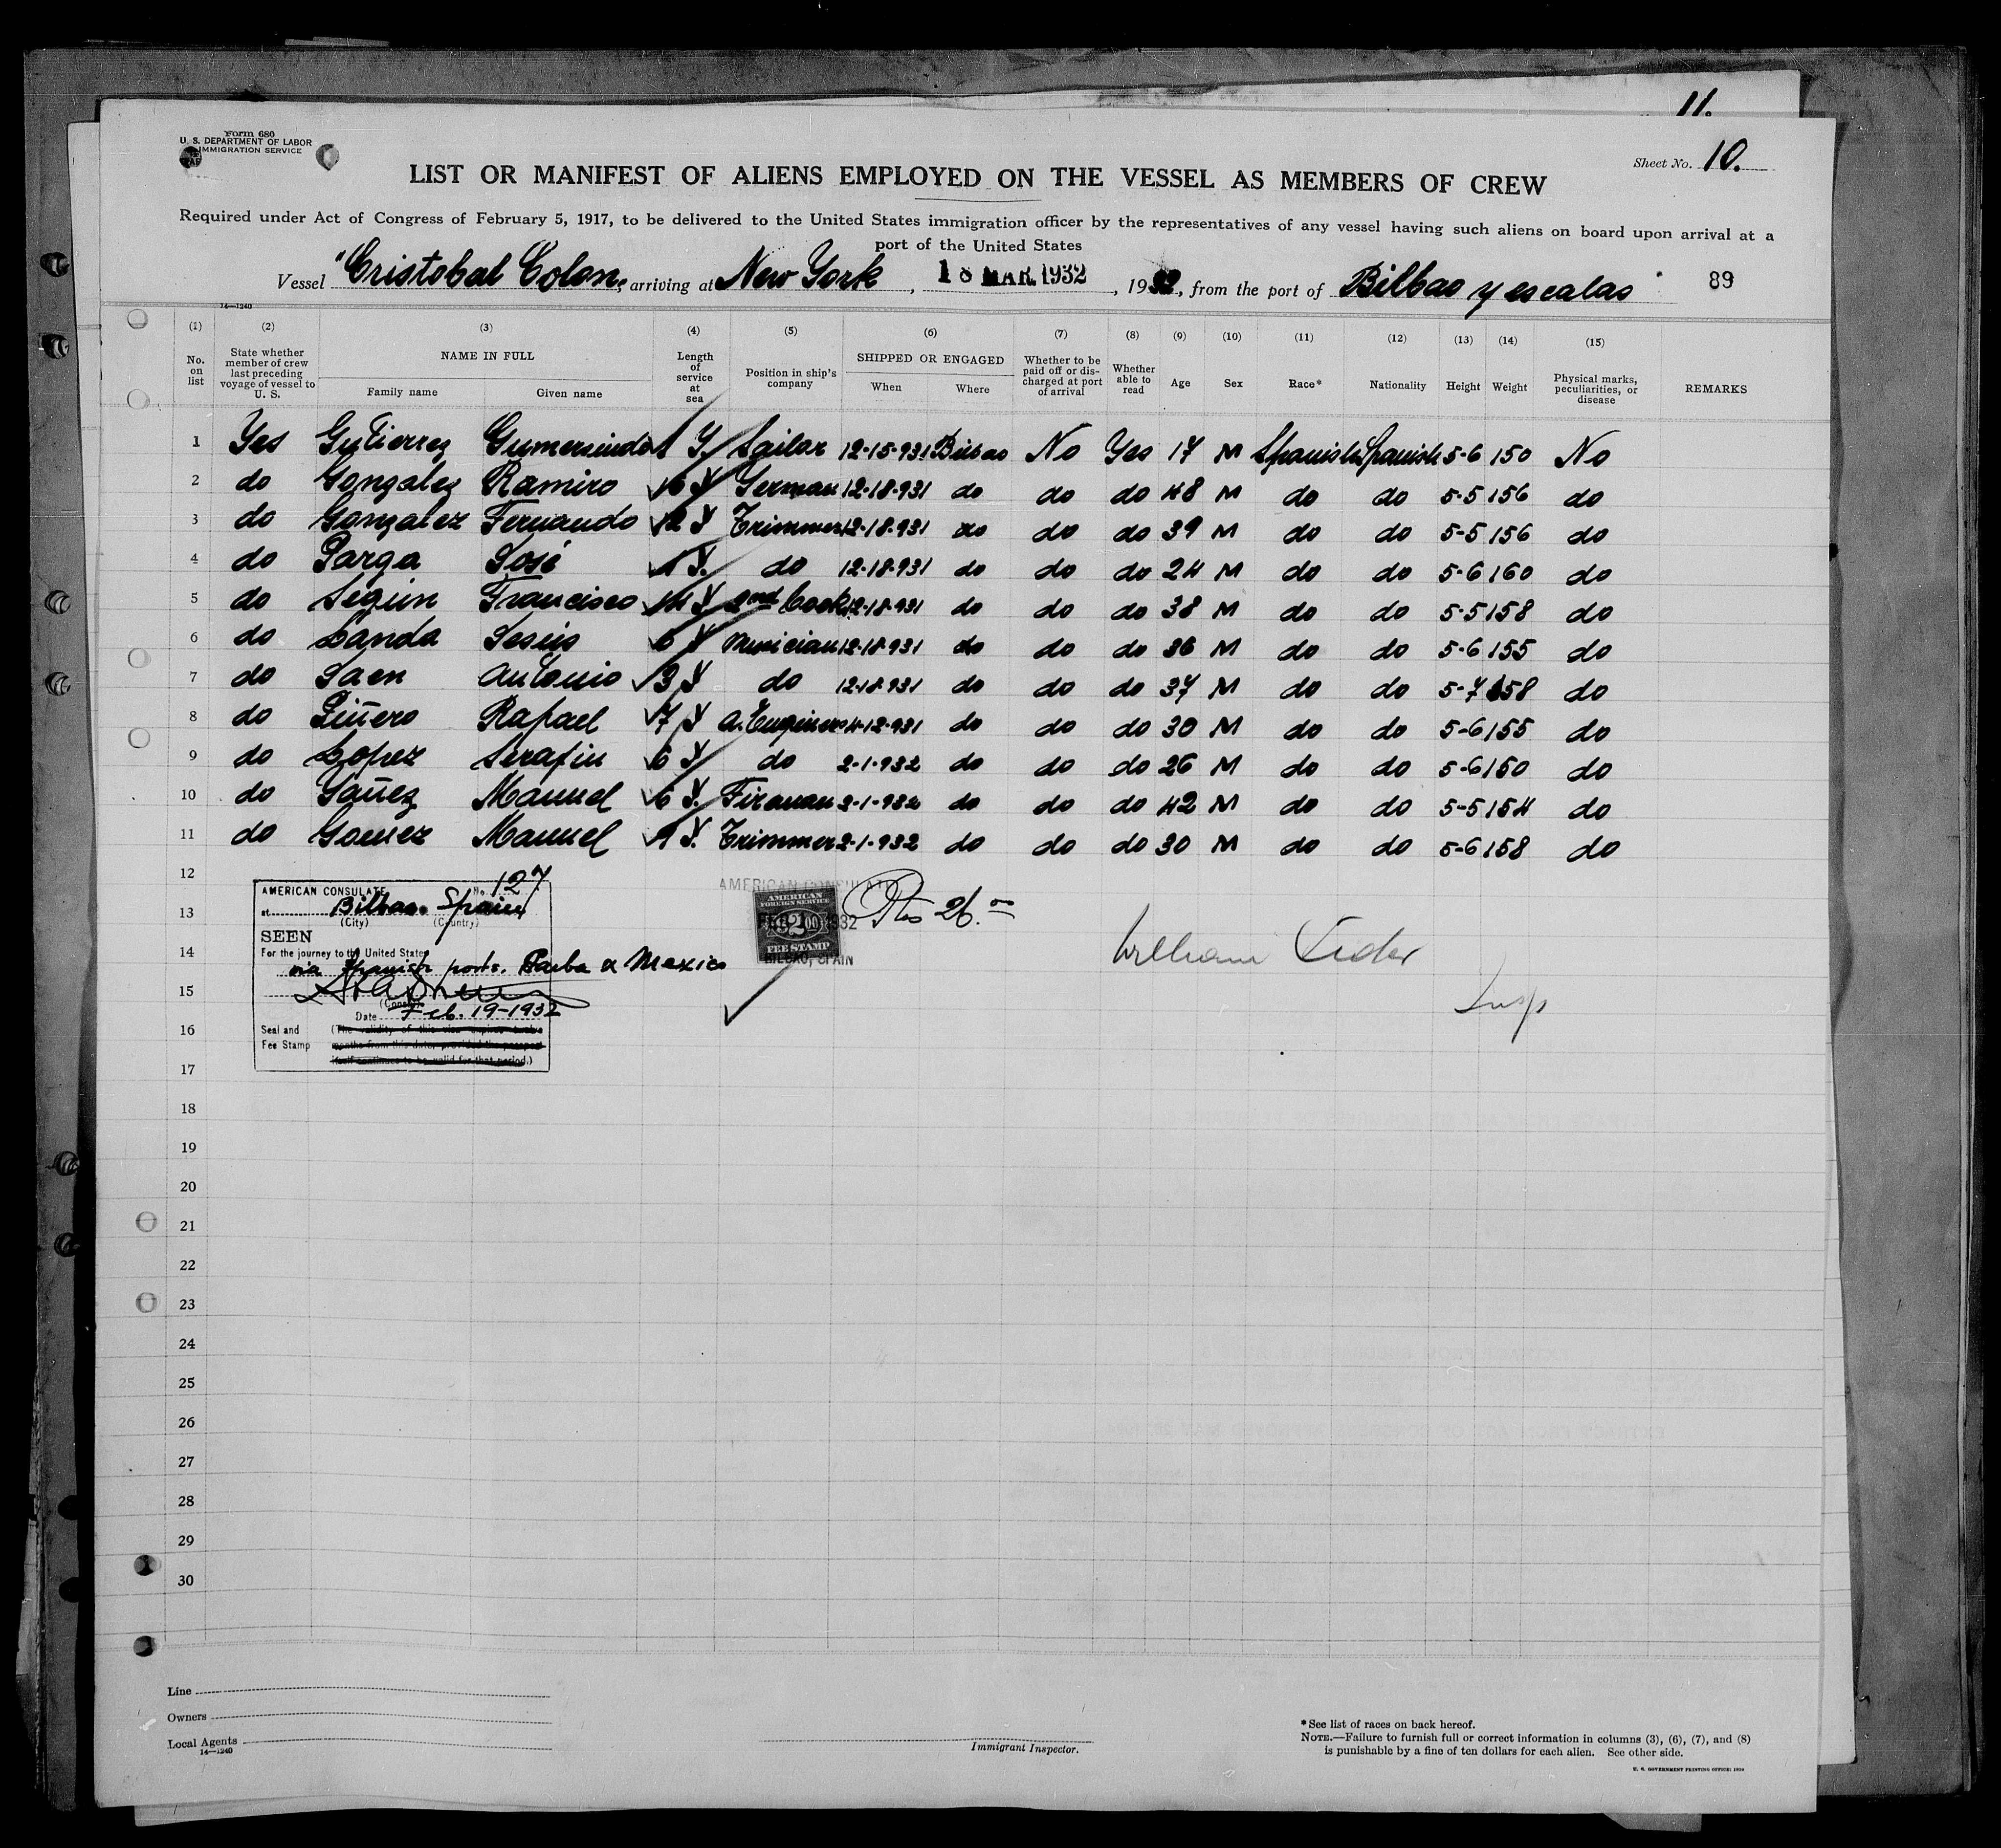 11.
Form 680
U. S. DEPARTMENT OF LABOR
IMMIGRATION SERVICE
Sheet No. 10.
LIST OR MANIFEST OF ALIENS EMPLOYED ON THE VESSEL AS MEMBERS OF CREW
Required under Act of Congress of February 5, 1917, to be delivered to the United States immigration officer by the representatives of any vessel having such aliens on board upon arrival at a
port of the United States
Vessel "Cristobal Colon", arriving at New York, 18 MAR. 1932, 1932, from the port of Bilbao y escalas 89
14—1240
(1) (2) (3) (4) (5) (6) (7) (8) (9) (10) (11) (12) (13) (14) (15)
No. on list State whether member of crew last preceding voyage of vessel to U. S. NAME IN FULL Family name Given name Length of service at sea Position in ship's company SHIPPED OR ENGAGED When Where Whether to be paid off or discharged at port of arrival Whether able to read Age Sex Race* Nationality Height Weight Physical marks, peculiarities, or disease REMARKS
1 Yes Gutierrez Gumersindo 1 Y. Sailor 12-15-931 Bilbao No Yes 17 M Spanish Spanish 5-6 150 No
2 do Gonzalez Ramiro 16 Y German 12-18-931 do do do 48 M do do 5-5 156 do
3 do Gonzalez Fernando 12 Y Trimmer 12-18-931 do do do 39 M do do 5-5 156 do
4 do Parga José 1 Y. do 12-18-931 do do do 24 M do do 5-6 160 do
5 do Seguin Francisco 14 Y 2nd Cook 12-18-931 do do do 38 M do do 5-5 158 do
6 do Landa Jesús 6 Y Musician 12-18-931 do do do 36 M do do 5-6 155 do
7 do Saen Antonio 3 Y do 12-18-931 do do do 37 M do do 5-7 158 do
8 do Piñero Rafael 7 Y A. Enginer 4-12-931 do do do 30 M do do 5-6 155 do
9 do Lopez Serafin 6 Y do 2-1-932 do do do 26 M do do 5-6 150 do
10 do Yañez Manuel 6 Y. Fireman 2-1-932 do do do 42 M do do 5-5 154 do
11 do Gomez Manuel 1 Y. Trimmer 2-1-932 do do do 30 M do do 5-6 158 do
12
13
14
15
16
17
18
19
20
21
22
23
24
25
26
27
28
29
30
AMERICAN CONSULATE No. 127
at Bilbao. Spain
(City) (Country)
SEEN
For the journey to the United States
via Spanish ports. Cuba & Mexico
(Consul)
Date Feb. 19-1932
Seal and (The validity of this visa expires twelve
Fee Stamp months from this date, provided the passport
itself continues to be valid for that period.)
AMERICAN CONSULATE
AMERICAN
FOREIGN SERVICE
$2.00
FEE STAMP
BILBAO, SPAIN
Pts 26.
William
Insp
Line
Owners
Local Agents
14—1240
Immigrant Inspector.
*See list of races on back hereof.
NOTE.—Failure to furnish full or correct information in columns (3), (6), (7), and (8)
is punishable by a fine of ten dollars for each alien. See other side.
U. S. GOVERNMENT PRINTING OFFICE: